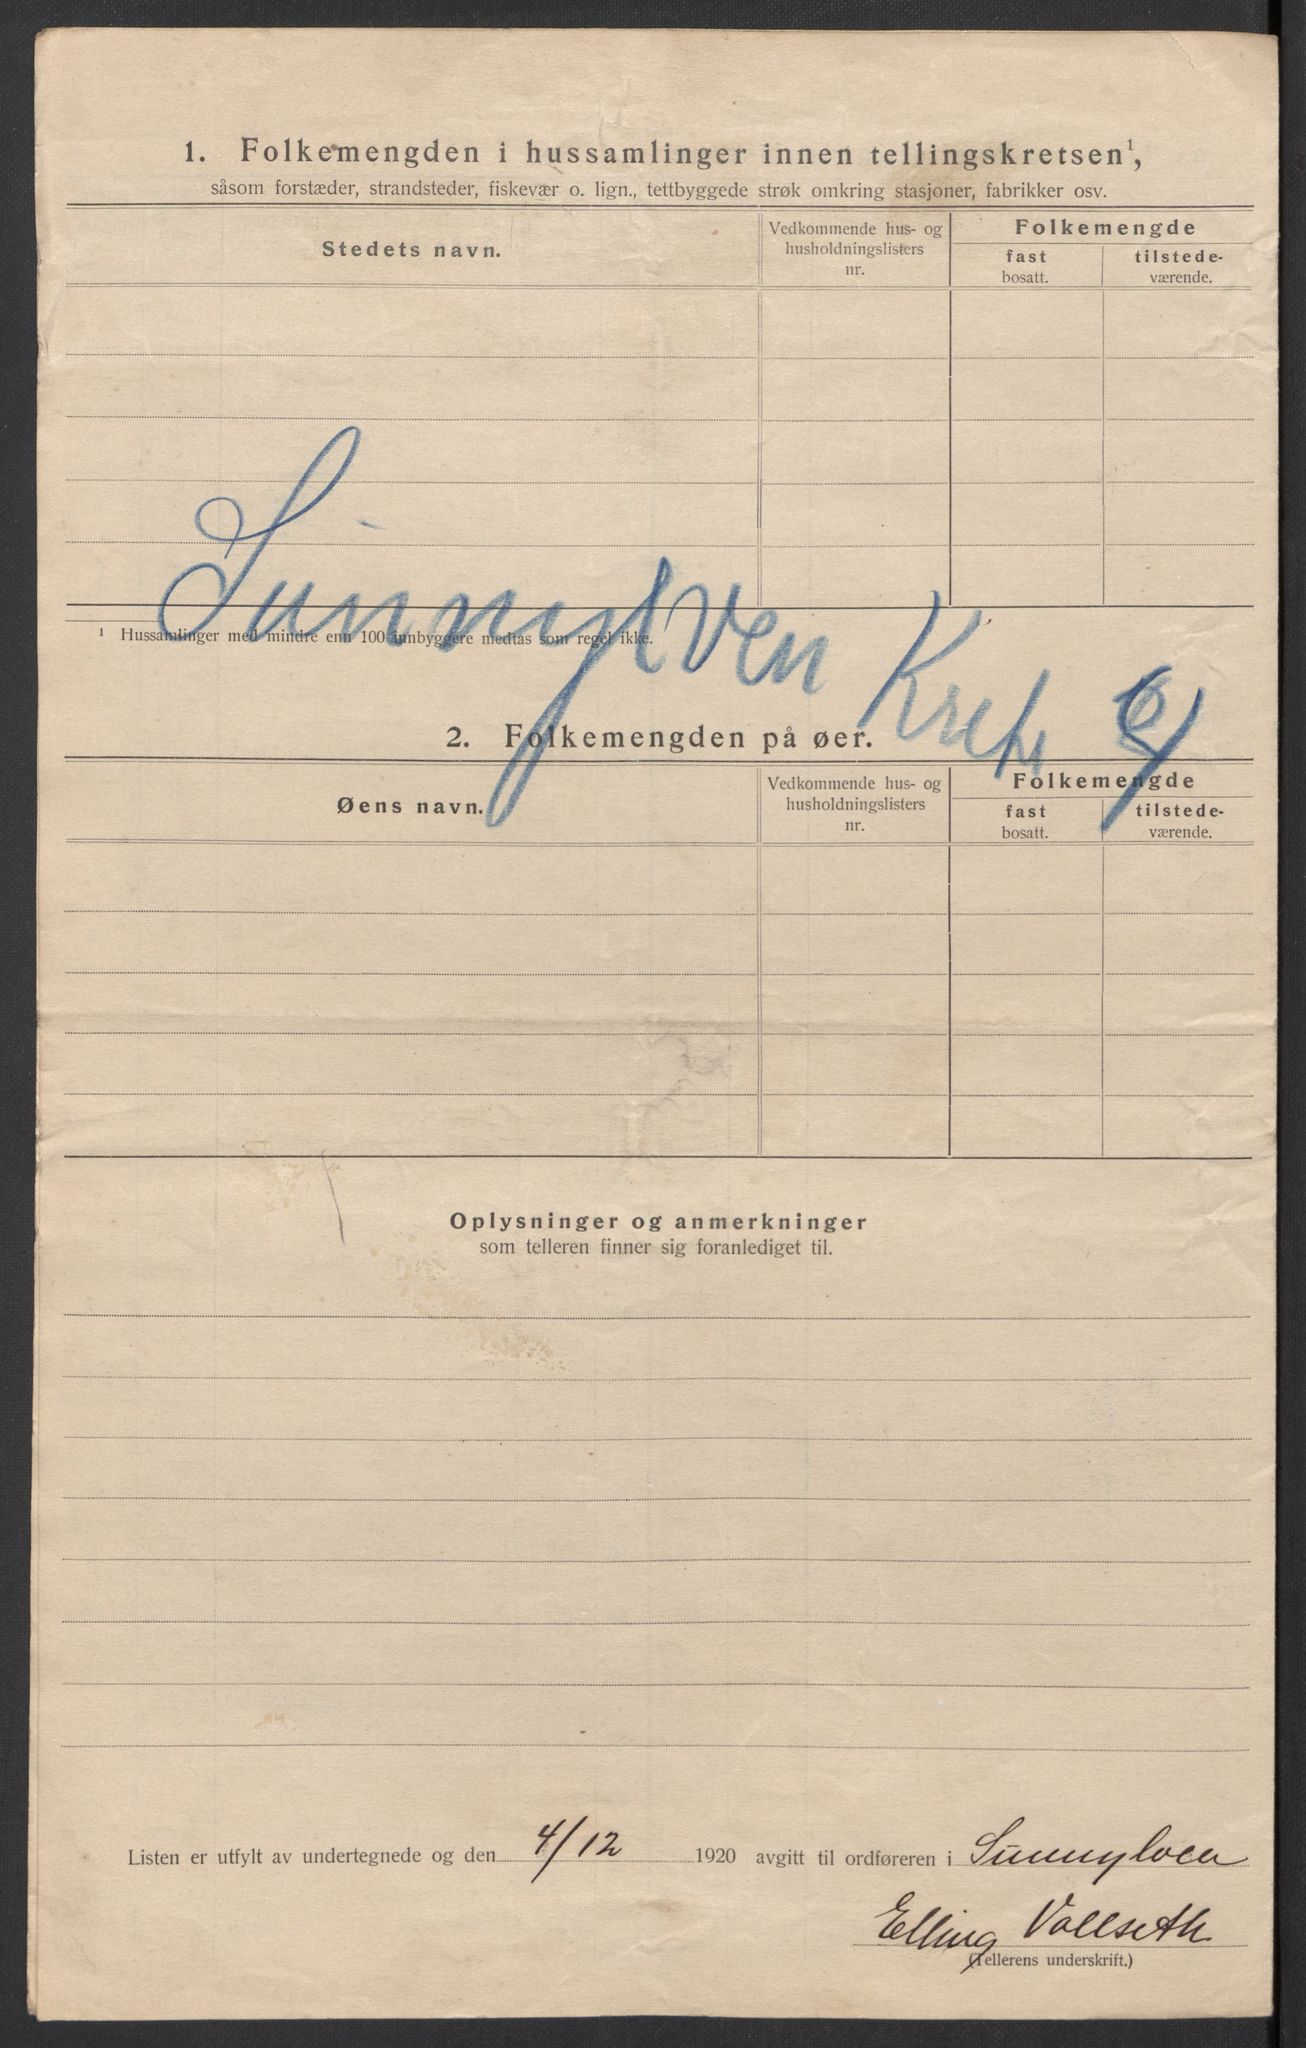 1. Folkemengden i hussamlinger innen tellingskretsen¹,
såsom forstæder, strandsteder, fiskevær o. lign., tettbyggede strøk omkring stasjoner, fabrikker osv.
Stedets navn.
Vedkommende hus- og
husholdningslisters
nr.
Folkemengde
fast
bosatt.
tilstede-
værende.
Sunnylven Krets
¹ Hussamlinger med mindre enn 100 innbyggere medtas som regel ikke.
2. Folkemengden på øer.
Øens navn.
Vedkommende hus- og
husholdningslisters
nr.
Folkemengde
fast
bosatt.
tilstede-
værende.
Oplysninger og anmerkninger
som telleren finner sig foranlediget til.
Listen er utfylt av undertegnede og den 4/12 1920 avgitt til ordføreren i Sunnylven
Elling Vollseth
(Tellerens underskrift.)